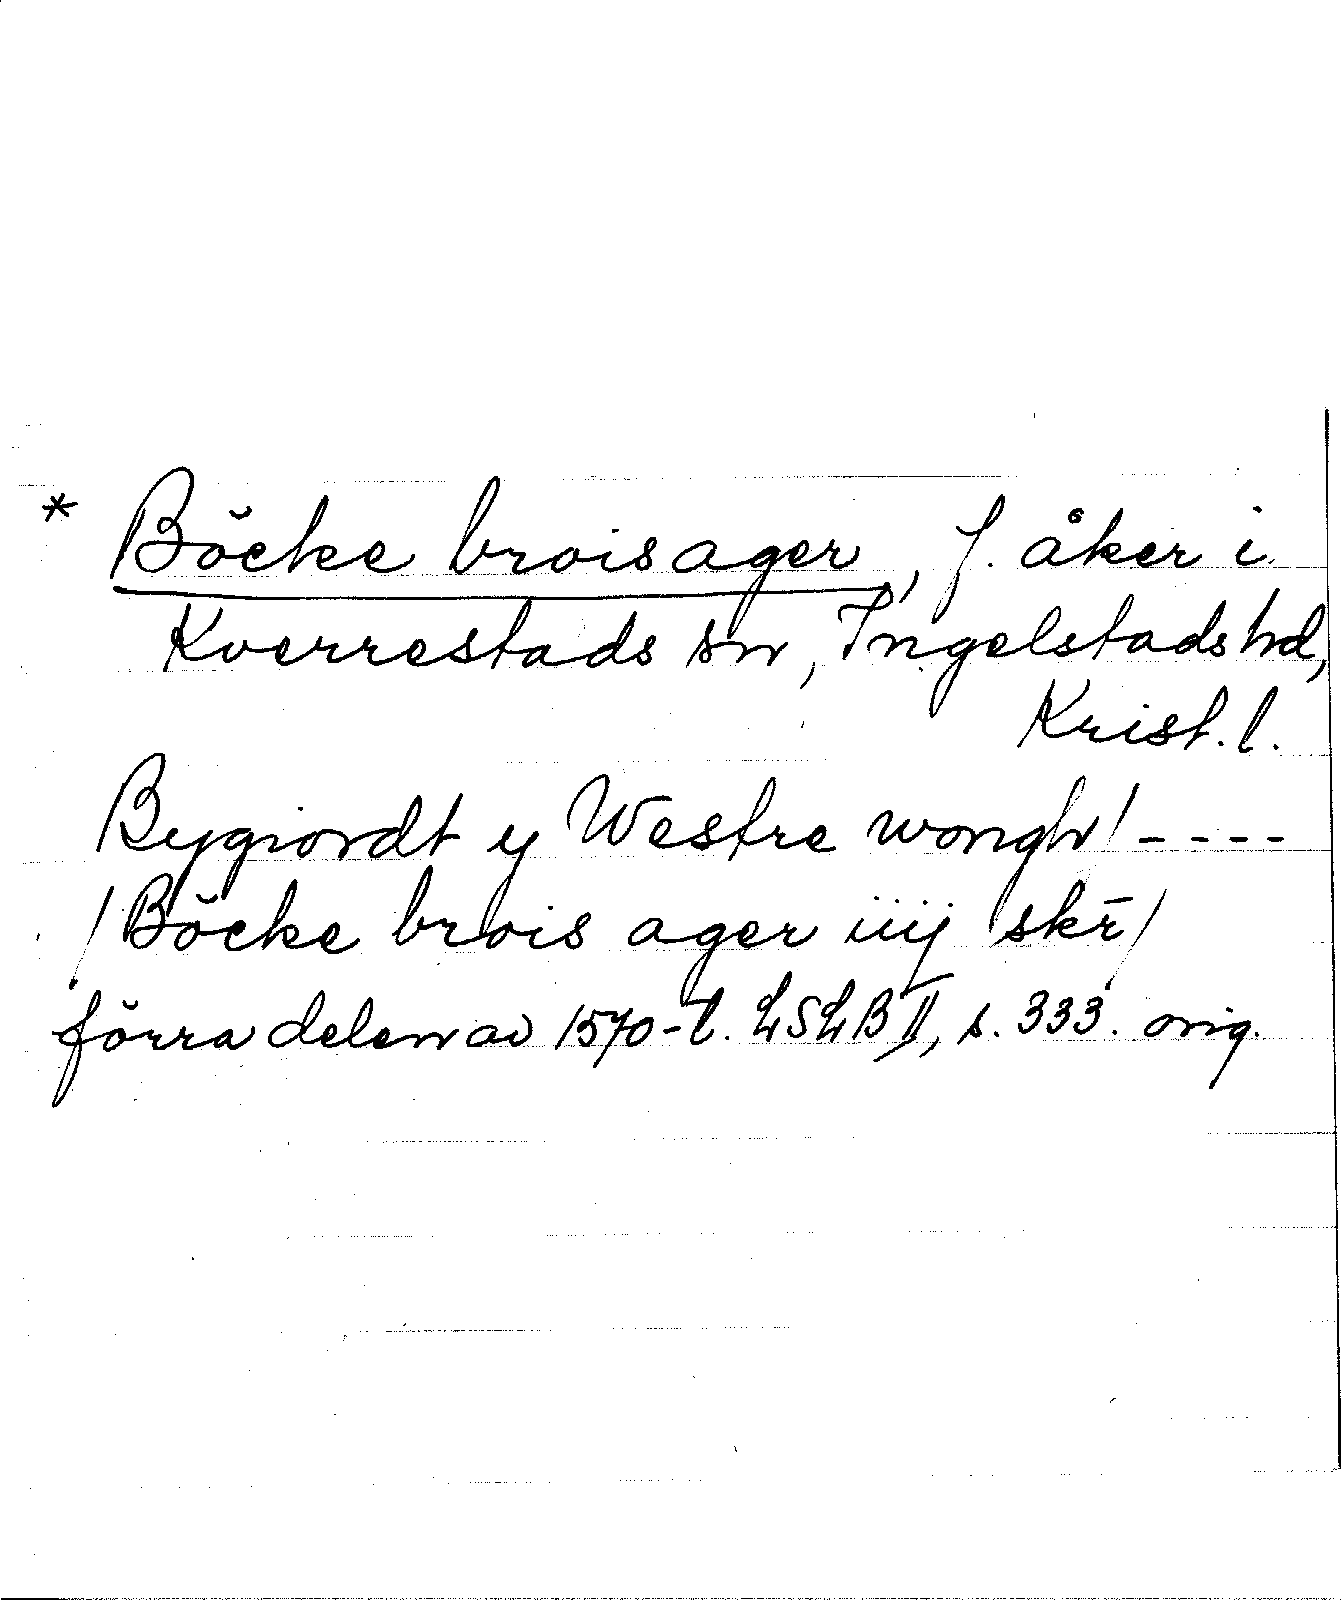 * Böcke broisager, f. åker i
Kverrestads sn, Ingelstads hd,
Krist. l.
Bygiordt y Westre wongh/ - - - -
/Böcke brois ager iiij skr̄/
förra delen av 1570-t. LSLB II, s. 333. orig.